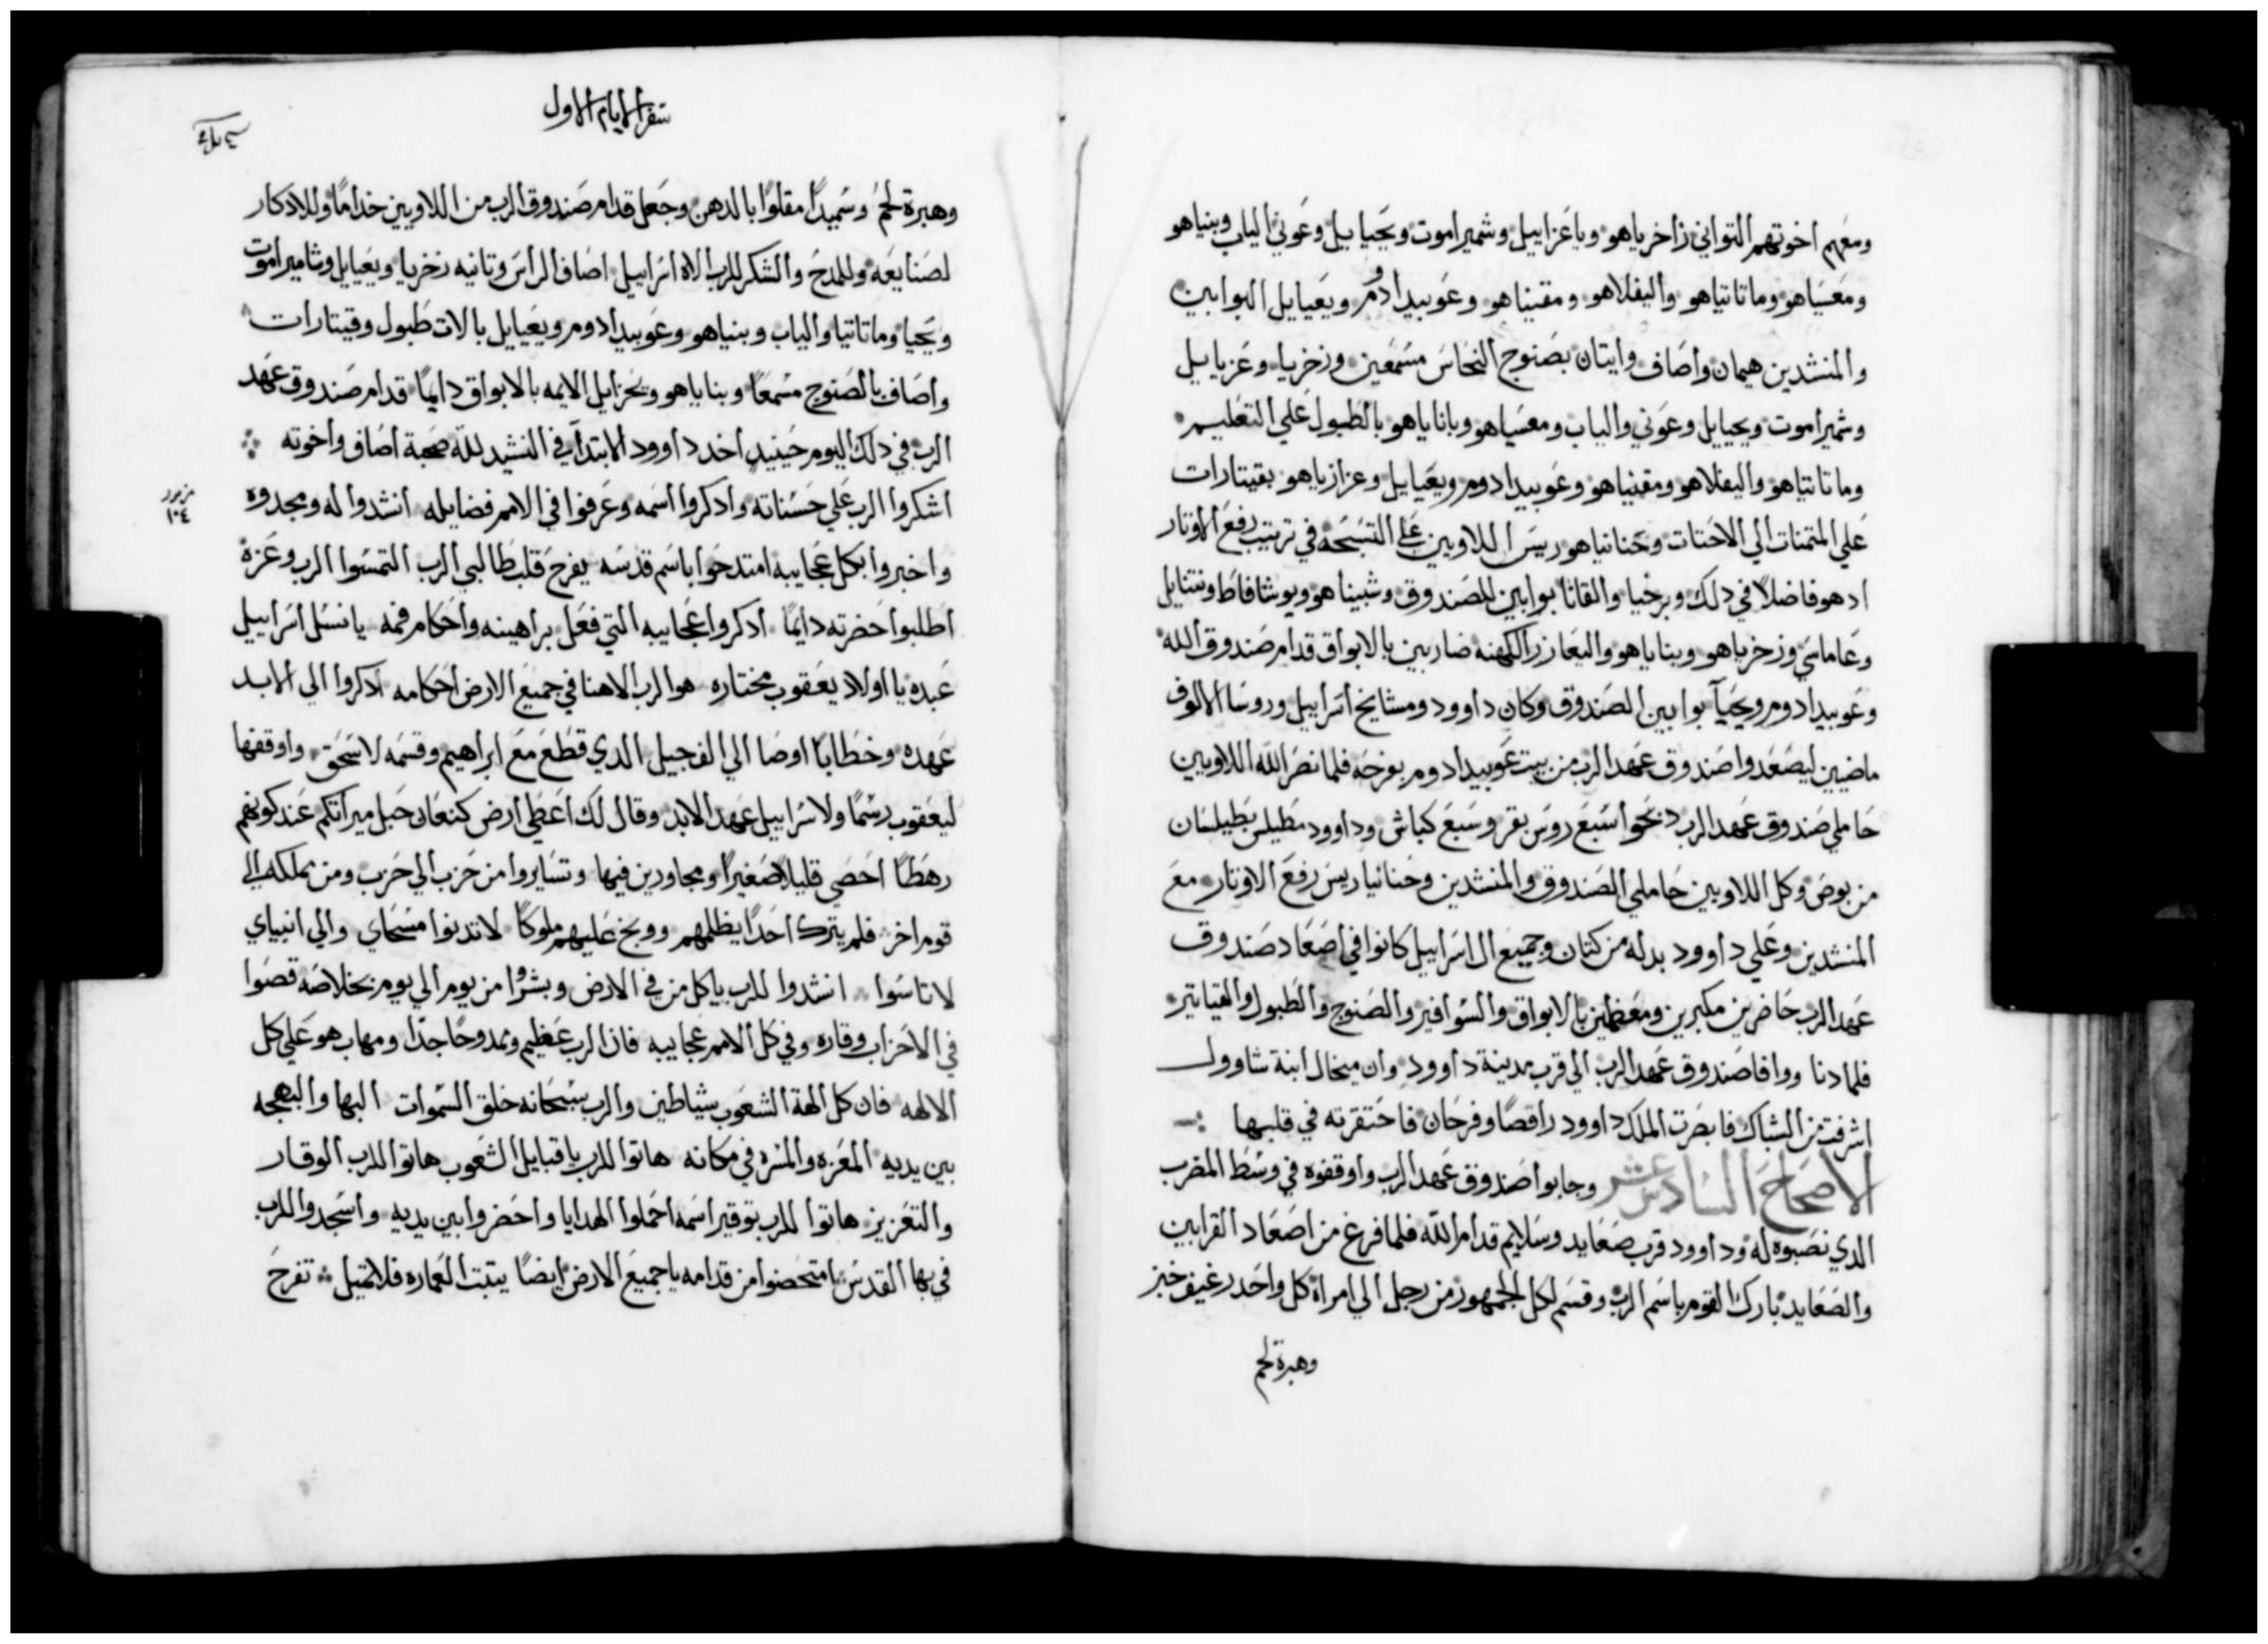 ومعهم اخوتهم التواني زاخرياهو وياعزاييل وشميراموت ويحياييل وعوني الياب وبنياهو
ومعسياهو وماتاتياهو واليفلاهو ومقنياهو وعوبيد ادوم ويعيايل البوابين
والمنشدين هيمان واصاف وايتان بصنوج النحاس مسمعين وزخريا وعزيايل
وشميراموت ويحيايل وعوني والياب ومعسياهو وباناياهو بالطبول علي التعليم
وماتاتياهو واليفلاهو ومقنياهو وعوبيد ادوم ويعيايل وعزازياهو بقيتارات
علي المتمنات الي الاحتات وحنانياهو ريس اللاويين علي التسبحه في ترتيب رفع الاوتار
ادهو فاضلا في دلك وبرخيا والقانا بوابين للصندوق وشبيناهو ويوشافاط ونتنايل
وعاماسي وزخرياهو وبناياهو واليعازر الكهنه ضاربين بالابواق قدام صندوق الله
وعوبيد ادوم ويحيا بوابين الصندوق وكان داوود ومشايخ اسراييل وروسا الالوف
ماضيين ليصعدوا صندوق عهد الرب من بيت عوبيد ادوم بفرحه فلما نصر الله اللاويين
حاملي صندوق عهد الرب دبحوا سبع روس بقر وسبع كباش وداوود مطيلس بطيلسان
من بوص وكل اللاويين حاملي الصندوق والمنشدين وحنانيا ريس رفع الاوتار مع
المنشدين وعلي داوود بدله من كتان وجميع ال اسراييل كانوا في اصعاد صندوق
عهد الرب حاضرين مكبرين ومعظمين بالابواق والسوافير والصنوج والطبول والقياتير
فلما دنا ووافا صندوق عهد الرب الي قرب مدينة داوود وان ميخال ابنة شاوول
اشرفت من الشباك فابصرت الملك داوود راقصا وفرحان فاحتقرته في قلبها
الاصحاح السادس عشر وجابوا صندوق عهد الرب واوقفوه في وسط المضرب
الدي نصبوه له وداوود قرب صعايد وسلايم قدام الله فلما فرغ من اصعاد القرابين
والصعايد بارك القوم باسم الرب وقسم لكل الجمهور من رجل الي امراة كل واحد رغيف خبز
وهبرة لحم
سفر الايام الاول
وهبرة لحم وسميدا مقلوا بالدهن وجعل قدام صندوق الرب من اللاويين خداما وللادكار
لصنايعه وللمدح والشكر للرب الاه اسراييل اصاف الراس وتانيه زخريا ويعيايل وشاميراموت
ويحيا وماتاتيا والياب وبنياهو وعوبيد ادوم ويعيايل بالات طبول وقيتارات
واصاف بالصنوج مسمعا وبناياهو ويحزايل الايمه بالابواق دايما قدام صندوق عهد
الرب في دلك اليوم حينيد اخد داوود الابتدا في النشيد لله صحبة اصاف واخوته
مزمور ١٠٤
اشكروا الرب علي حسناته وادكروا اسمه وعرفوا في الامم فضايله انشدوا له ومجدوه
واخبروا بكل عجايبه امتدحوا باسم قدسه يفرح قلب طالبي الرب التمسوا الرب وعزه
اطلبوا حضرته دايما ادكروا عجايبه التي فعل براهينه واحكام فمه يا نسل اسراييل
عبده يا اولاد يعقوب مختاره هو الرب الاهنا في جميع الارض احكامه ادكروا الي الابد
عهده وخطابا اوصا الي الف جيل الدي قطع مع ابراهيم وقسمه لاسحق واوقفها
ليعقوب رسما ولاسراييل عهد الابد وقال لك اعطي ارض كنعان حبل ميراتكم عند كونهم
رهطا احصي قليلا صغيرا ومجاورين فيها وتسايروا من حزب الي حزب ومن مملكه الي
قوم اخر فلم يترك احدا يظلمهم ووبخ عليهم ملوكا لا تدنوا مسحاي والي انبياي
لا تاسوا انشدوا للرب يا كل من في الارض وبشروا من يوم الي يوم بخلاصه قصوا
في الاحزاب وقاره وفي كل الامم عجايبه فان الرب عظيم وممدوحا جدا ومهاب هو علي كل
الالهه فان كل الهة الشعوب شياطين والرب سبحانه خلق السموات البها والبهجه
بين يديه المعزه والمسره في مكانه هاتوا للرب يا قبايل الشعوب هاتوا للرب الوقار
والتعزيز هاتوا للرب توقير اسمه احملوا الهدايا واحضروا بين يديه واسجدوا للرب
في بها القدس امتحضوا من قدامه يا جميع الارض ايضا يتبت العماره فلا تميل تفرح